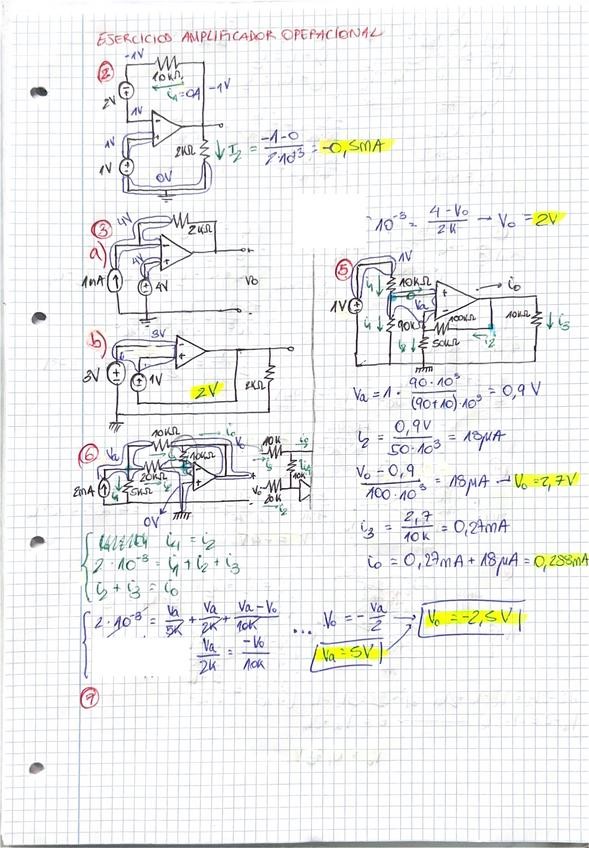 EJERCICIOS AMPLIFICADOR OPERACIONAL
2
-1V
10KΩ
i₁=0A
-1V
2V
1V
-
+
1V
1V
0V
2KΩ
I₂ = (-1-0)/(2·10³) = -0,5mA
3
a)
4V
2KΩ
4V
1mA
4V
Vo
10⁻³ = (4-Vo)/2K → Vo = 2V
b)
3V
3V
1V
2V
2KΩ
5
1V
1V
10KΩ
i₁
Va
90KΩ
100KΩ
50KΩ
i₂
io
10KΩ
i₃
Va = 1 · (90·10³)/((90+10)·10³) = 0,9V
i₂ = 0,9V/(50·10³) = 18μA
(Vo-0,9)/(100·10³) = 18μA → Vo = 2,7V
i₃ = 2,7/10K = 0,27mA
io = 0,27mA + 18μA = 0,288mA
6
Va
10KΩ
10KΩ
20KΩ
5KΩ
2mA
0V
10K
10K
Vo
20K
i₁ = i₂
2·10⁻³ = i₁ + i₂ + i₃
i₂ + i₃ = io
2·10⁻³ = Va/5K + Va/2K + (Va-Vo)/10K
Va/2K = -Vo/10K
... Vo = -Va/2 → Vo = -2,5V
Va = 5V
7